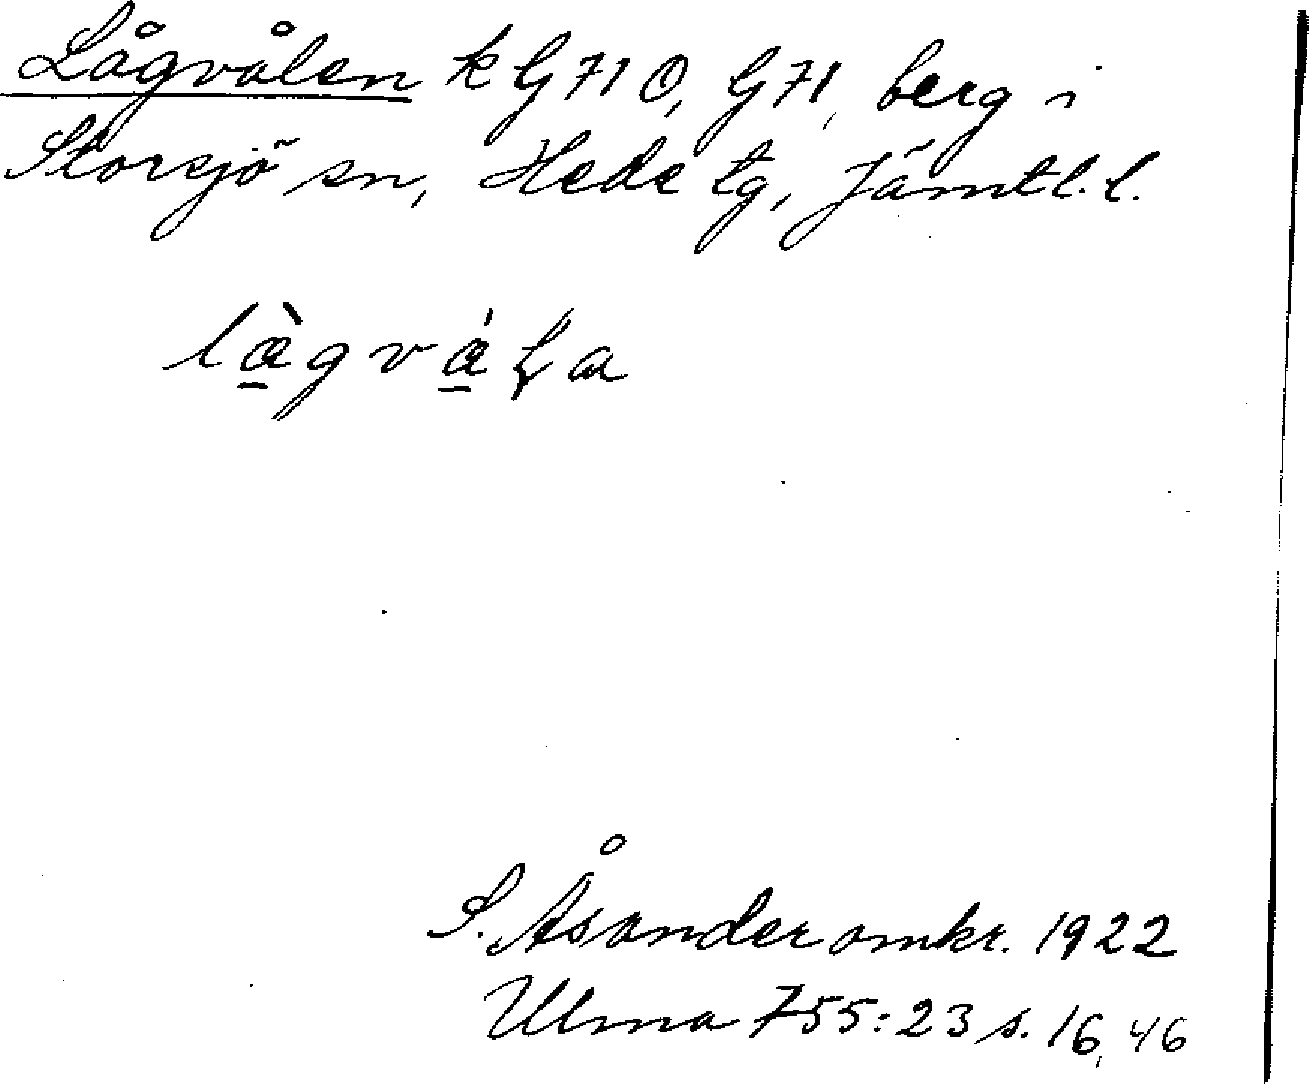 Lågvålen k G71 O, G71, berg i
Storsjö sn, Hede tg, Jämtl. l.
là̠gvá̠ɫa
S. Åsander omkr. 1922
Ulma 755:23 s. 16, 46